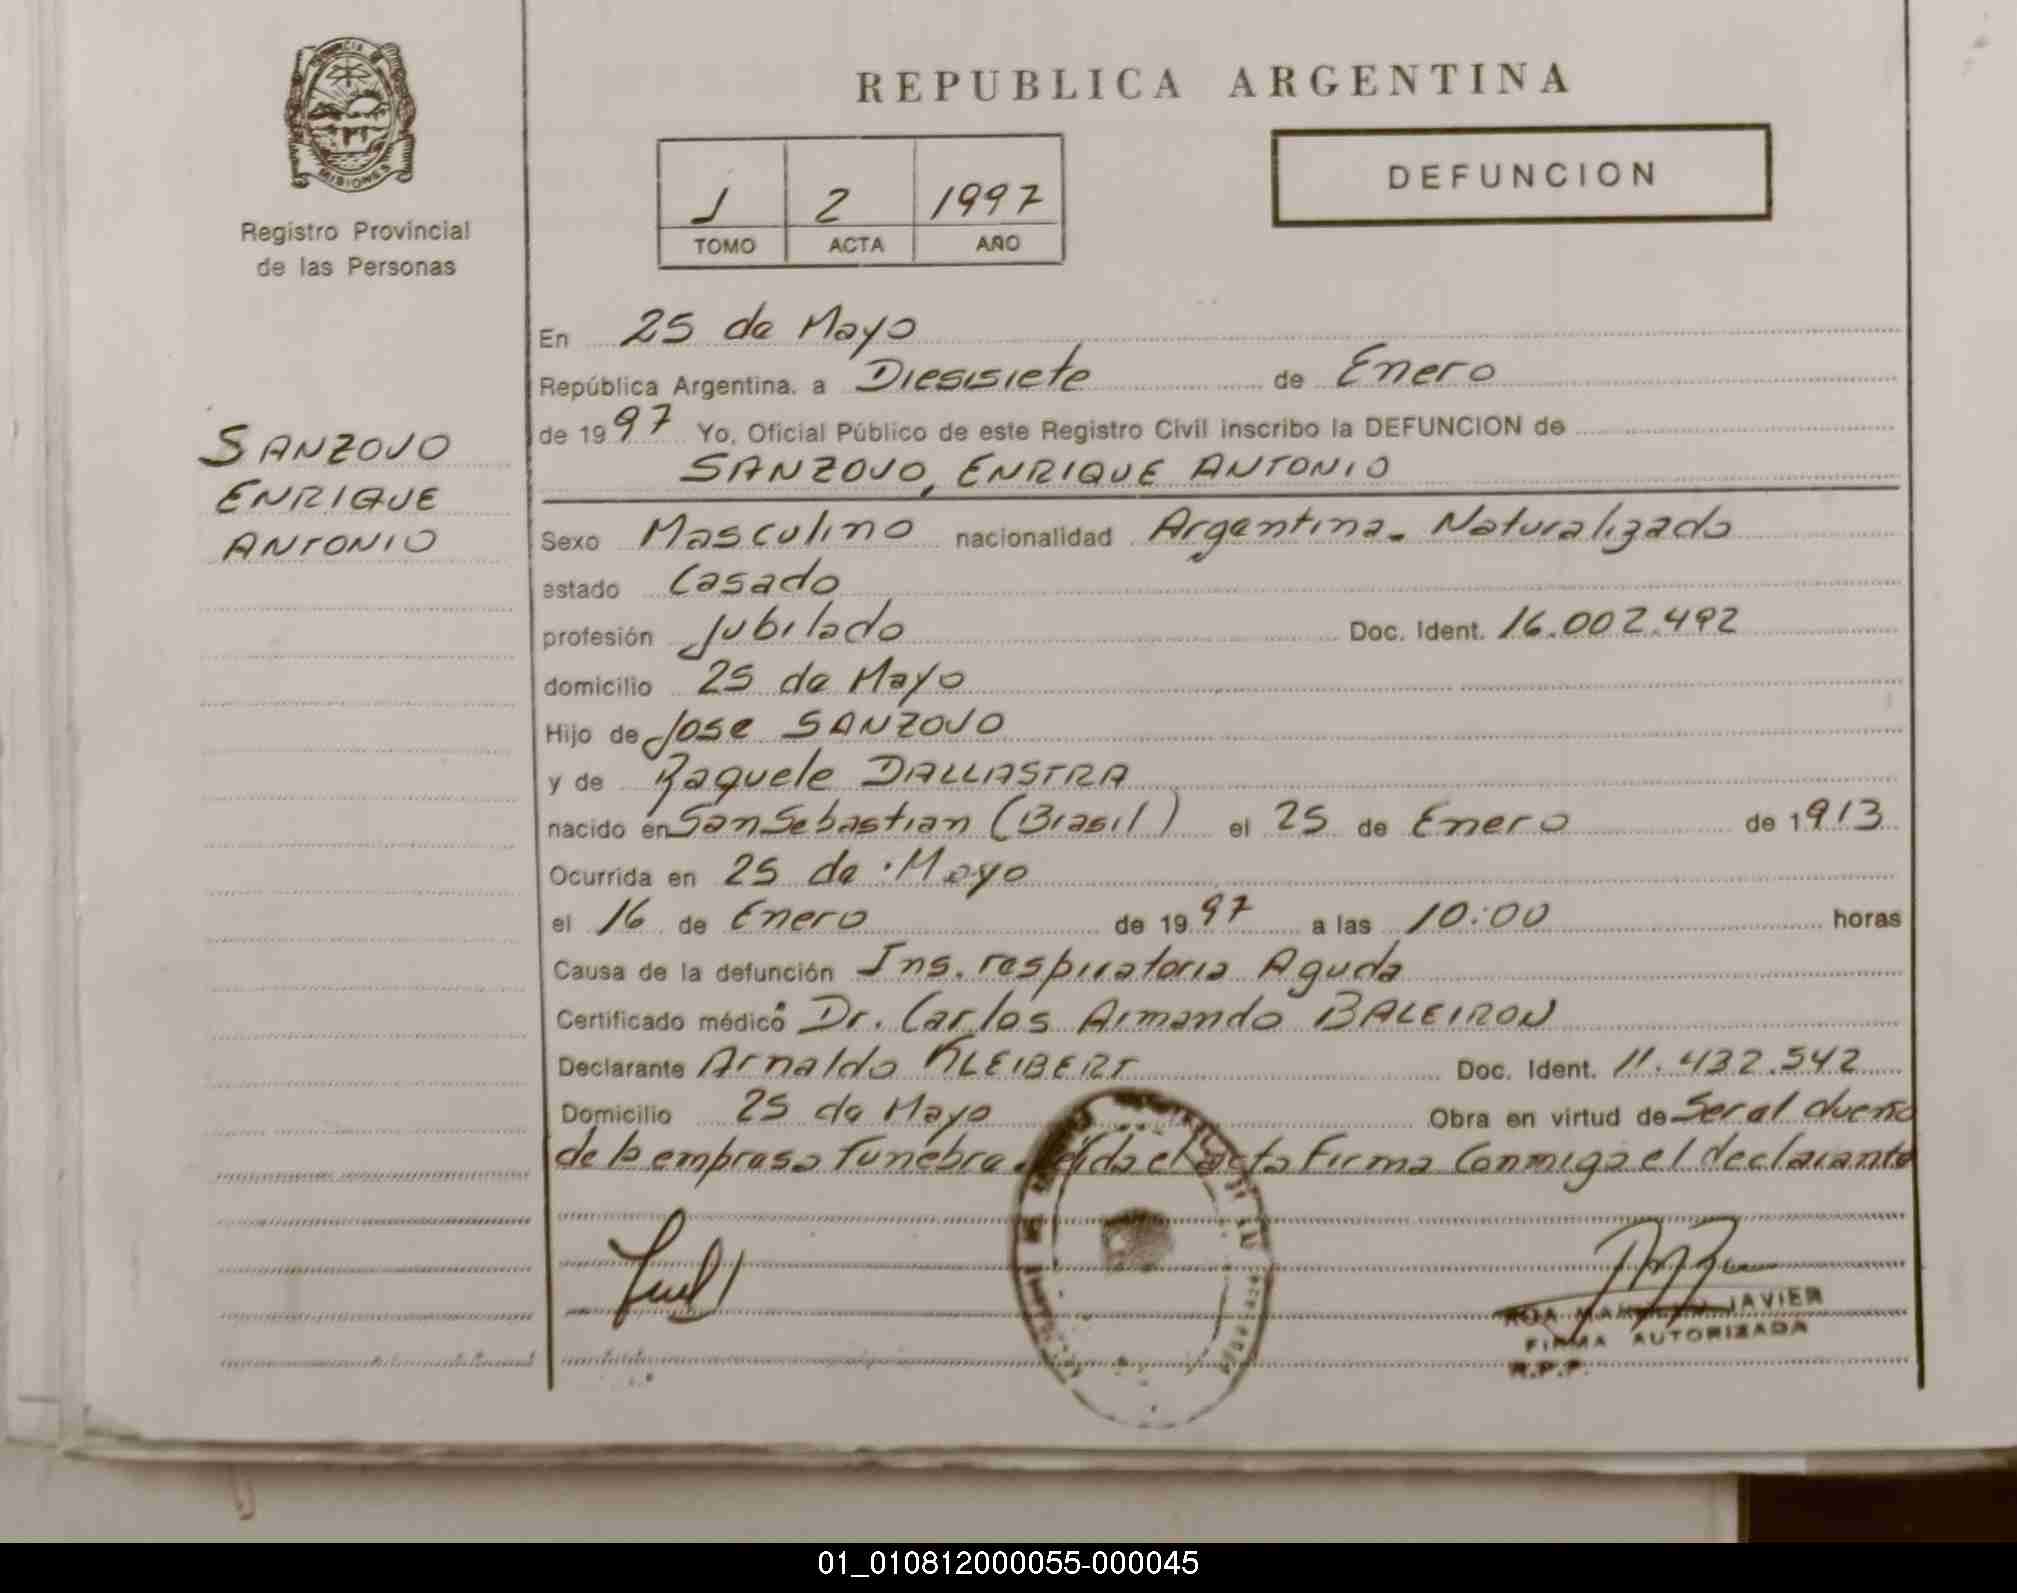 REPUBLICA ARGENTINA
MISIONES
Registro Provincial
de las Personas
1 2 1997
TOMO ACTA AÑO
DEFUNCION
SANZOVO
ENRIQUE
ANTONIO
En 25 de Mayo
República Argentina. a Diesisiete de Enero
de 1997 Yo, Oficial Público de este Registro Civil inscribo la DEFUNCION de
SANZOVO, ENRIQUE ANTONIO
Sexo Masculino nacionalidad Argentina. Naturalizado
estado Casado
profesión Jubilado Doc. Ident. 16.002.492
domicilio 25 de Mayo
Hijo de Jose SANZOVO
y de Raquele DALLASTRA
nacido en San Sebastian (Brasil) el 25 de Enero de 1913
Ocurrida en 25 de Mayo
el 16 de Enero de 1997 a las 10:00 horas
Causa de la defunción Ins. respiratoria Aguda
Certificado médico Dr. Carlos Armando BALEIRON
Declarante Arnaldo KLEIBERT Doc. Ident. 11.432.542
Domicilio 25 de Mayo Obra en virtud de Ser al dueño
de la empresa funebre. el acta Firma Conmigo el declarante
JAVIER
FIRMA AUTORIZADA
R.P.P.
01_010812000055-000045